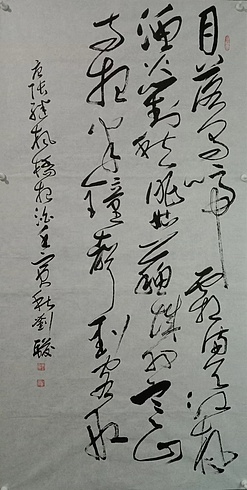 月落乌啼霜满天江枫
渔火对愁眠姑苏城外寒山
寺夜半钟声到客船
唐张继枫桥夜泊壬寅秋刘骏